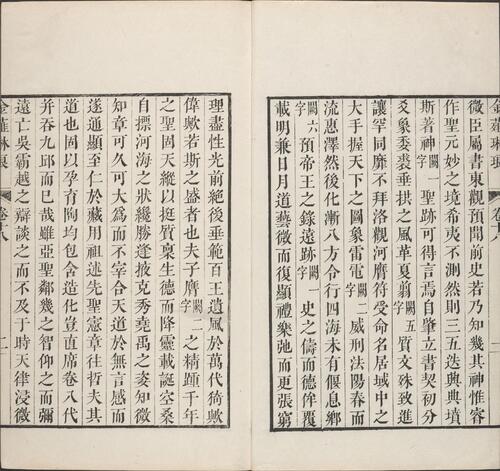 微臣屬書東觀預聞前史若乃知幾其神惟睿
作聖元妙之境希夷不測然則三五迭興典墳
斯著神闕一字聖跡可得言焉自肇立書契初分
爻象委裘垂拱之風革夏翦闕五字質文殊致進
讓罕同靡不拜洛觀河膺符受命名居域中之
大手握天下之圖象雷電闕一字威刑法陽春而
流惠澤然後化漸八方令行四海未有偃息鄉
闕六字預帝王之錄遠跡闕一字史之儔而德侔覆
載明兼日月道藝微而復顯禮樂弛而更張窮
理盡性光前絕後垂範百王遺風於萬代猗歟
偉歟若斯之盛者也夫子膺闕二字之精踵千年
之聖固天縱以挺質稟生德而降靈載誕空桑
自摽河海之狀纔勝逢掖克秀堯禹之姿知微
知章可久可大爲而不宰合天道於無言感而
遂通顯至仁於藏用祖述先聖憲章往哲夫其
道也固以孕育陶均包含造化豈直席卷八代
并吞九邱而已哉雖亞聖鄰幾之智仰之而彌
遠亡吳霸越之辯談之而不及于時天律浸微
金薤琳琅 卷十八 二